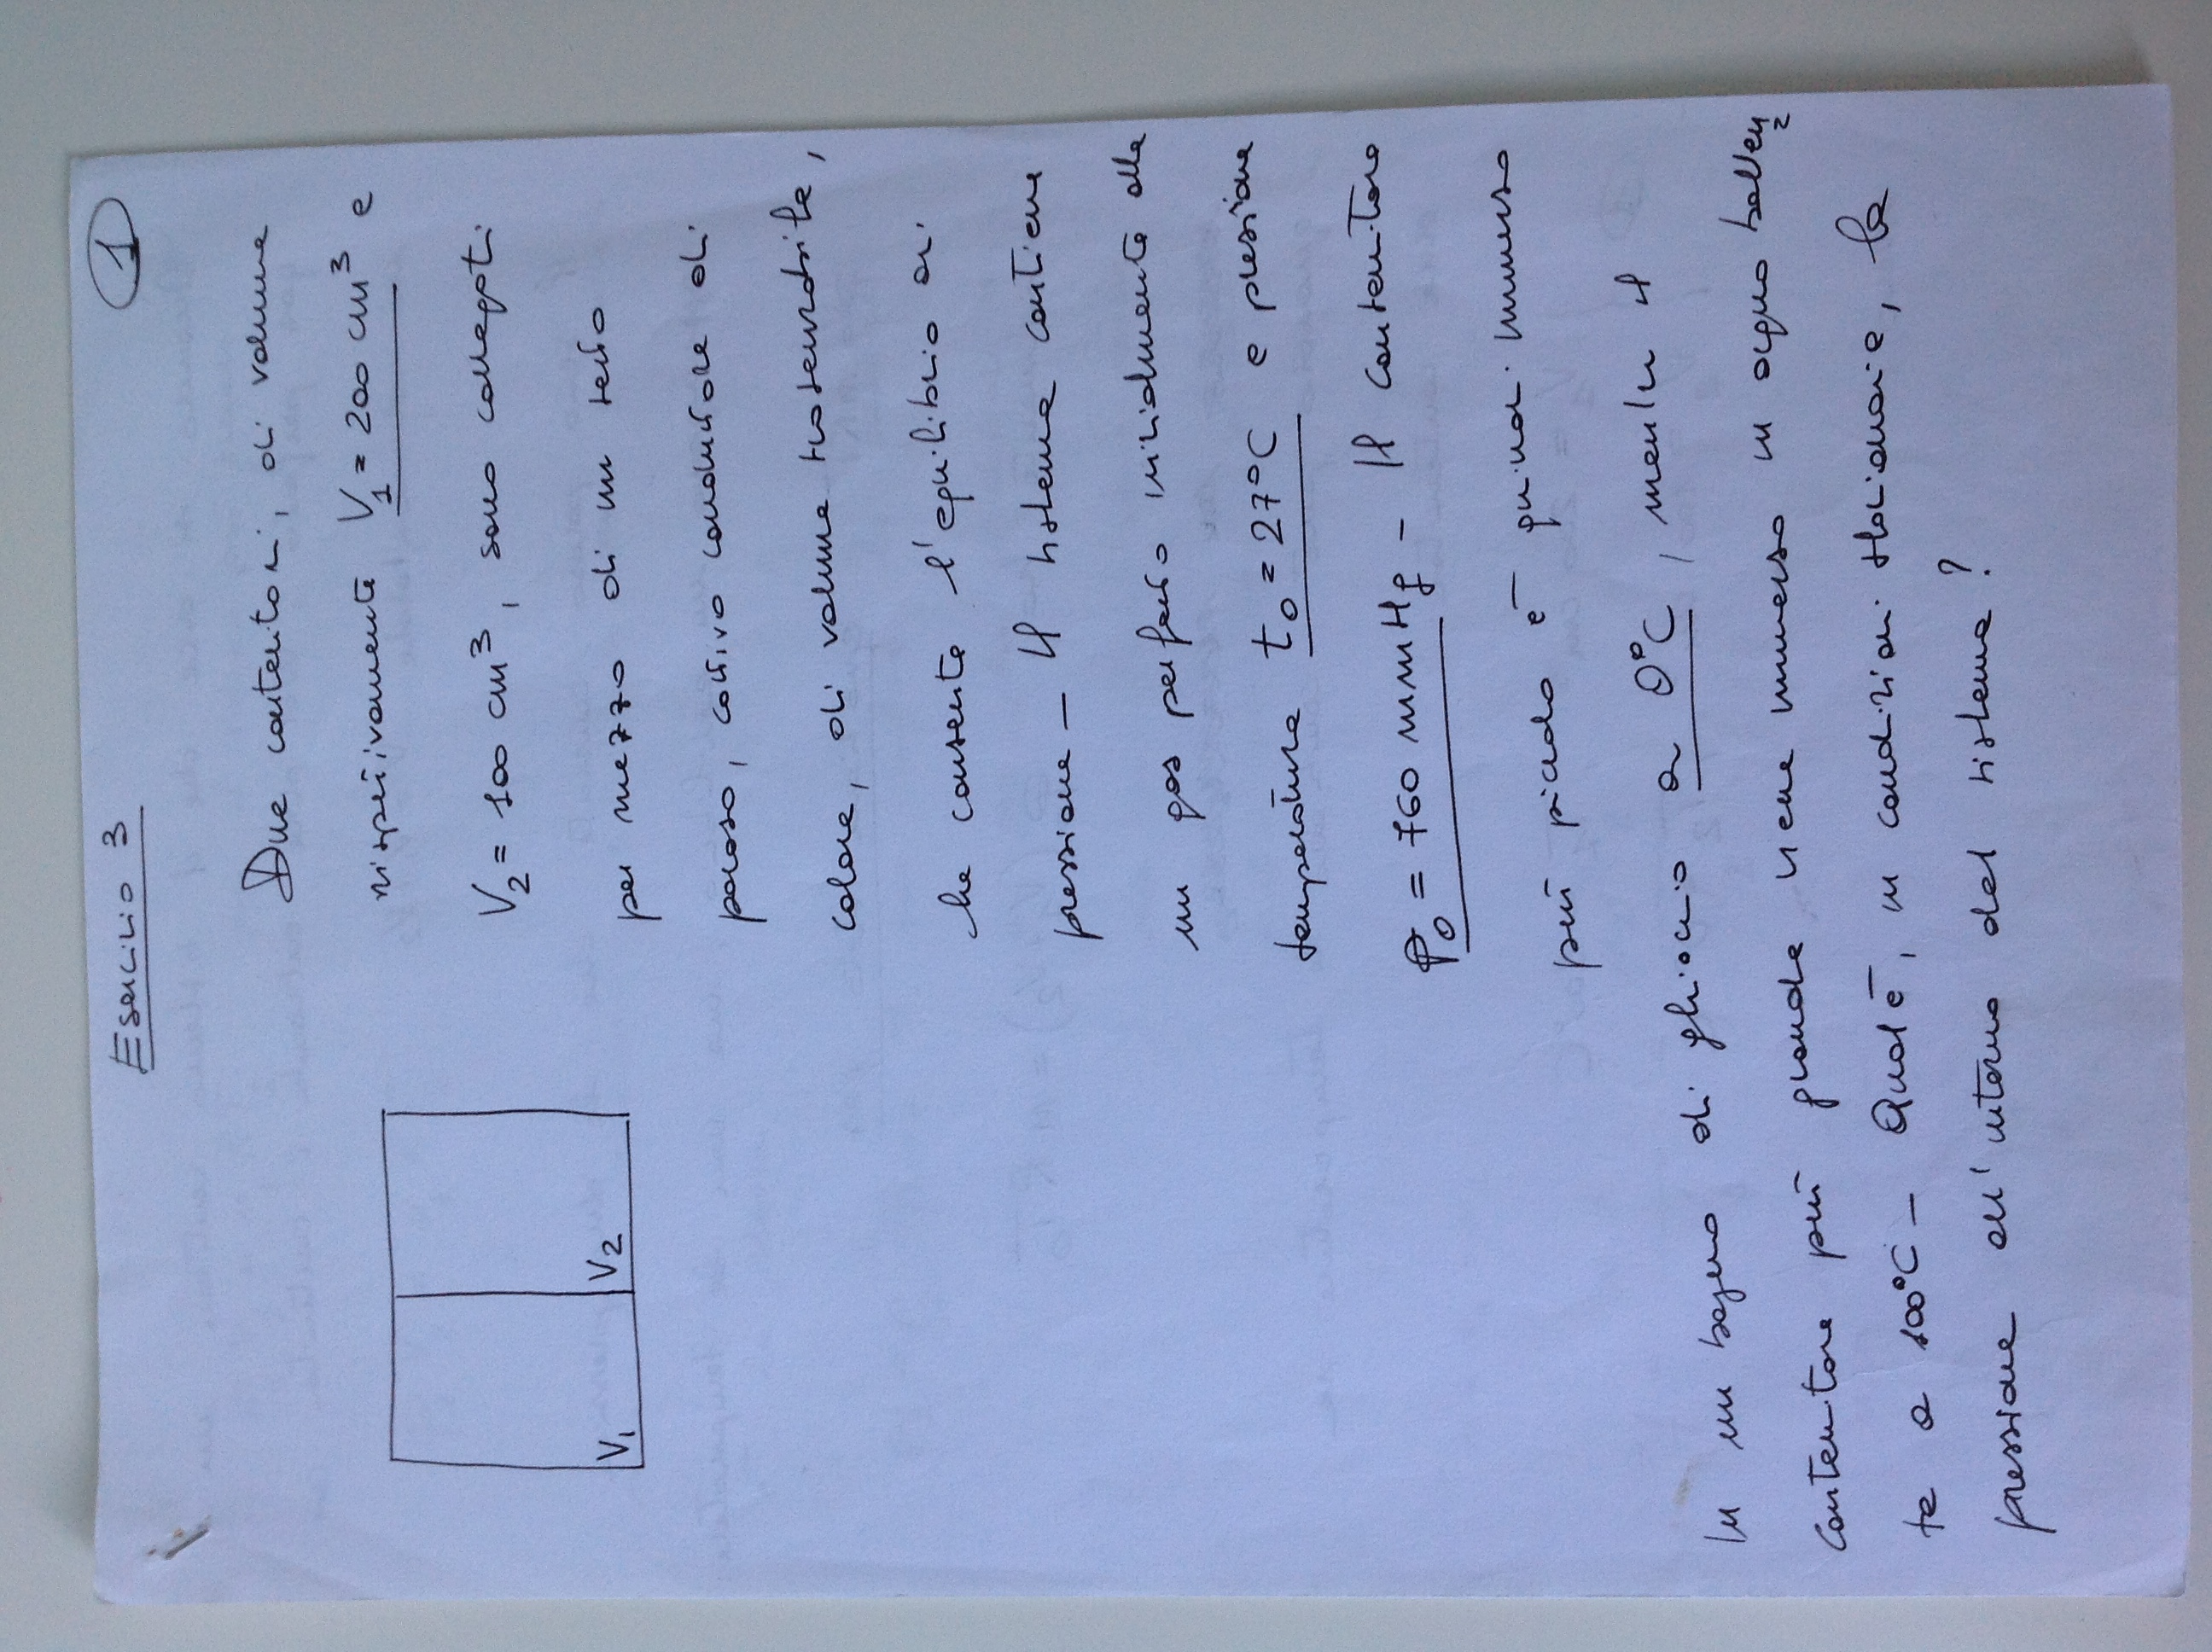 Esercizio 3
1
Due contenitori, di volume
rispettivamente V1 = 200 cm³ e
V2 = 100 cm³, sono collegati
per mezzo di un setto
poroso, cattivo conduttore di
calore, di volume trascurabile,
che consente l'equilibrio di
pressione - Il sistema contiene
un gas perfetto inizialmente alla
temperatura t0 = 27°C e pressione
P0 = 760 mmHg - Il contenitore
più piccolo è quindi immerso
V1 V2
in un bagno di ghiaccio a 0°C, mentre il
contenitore più grande viene immerso in acqua bollen=
te a 100°C - Qual è, in condizioni stazionarie, la
pressione all'interno del sistema?